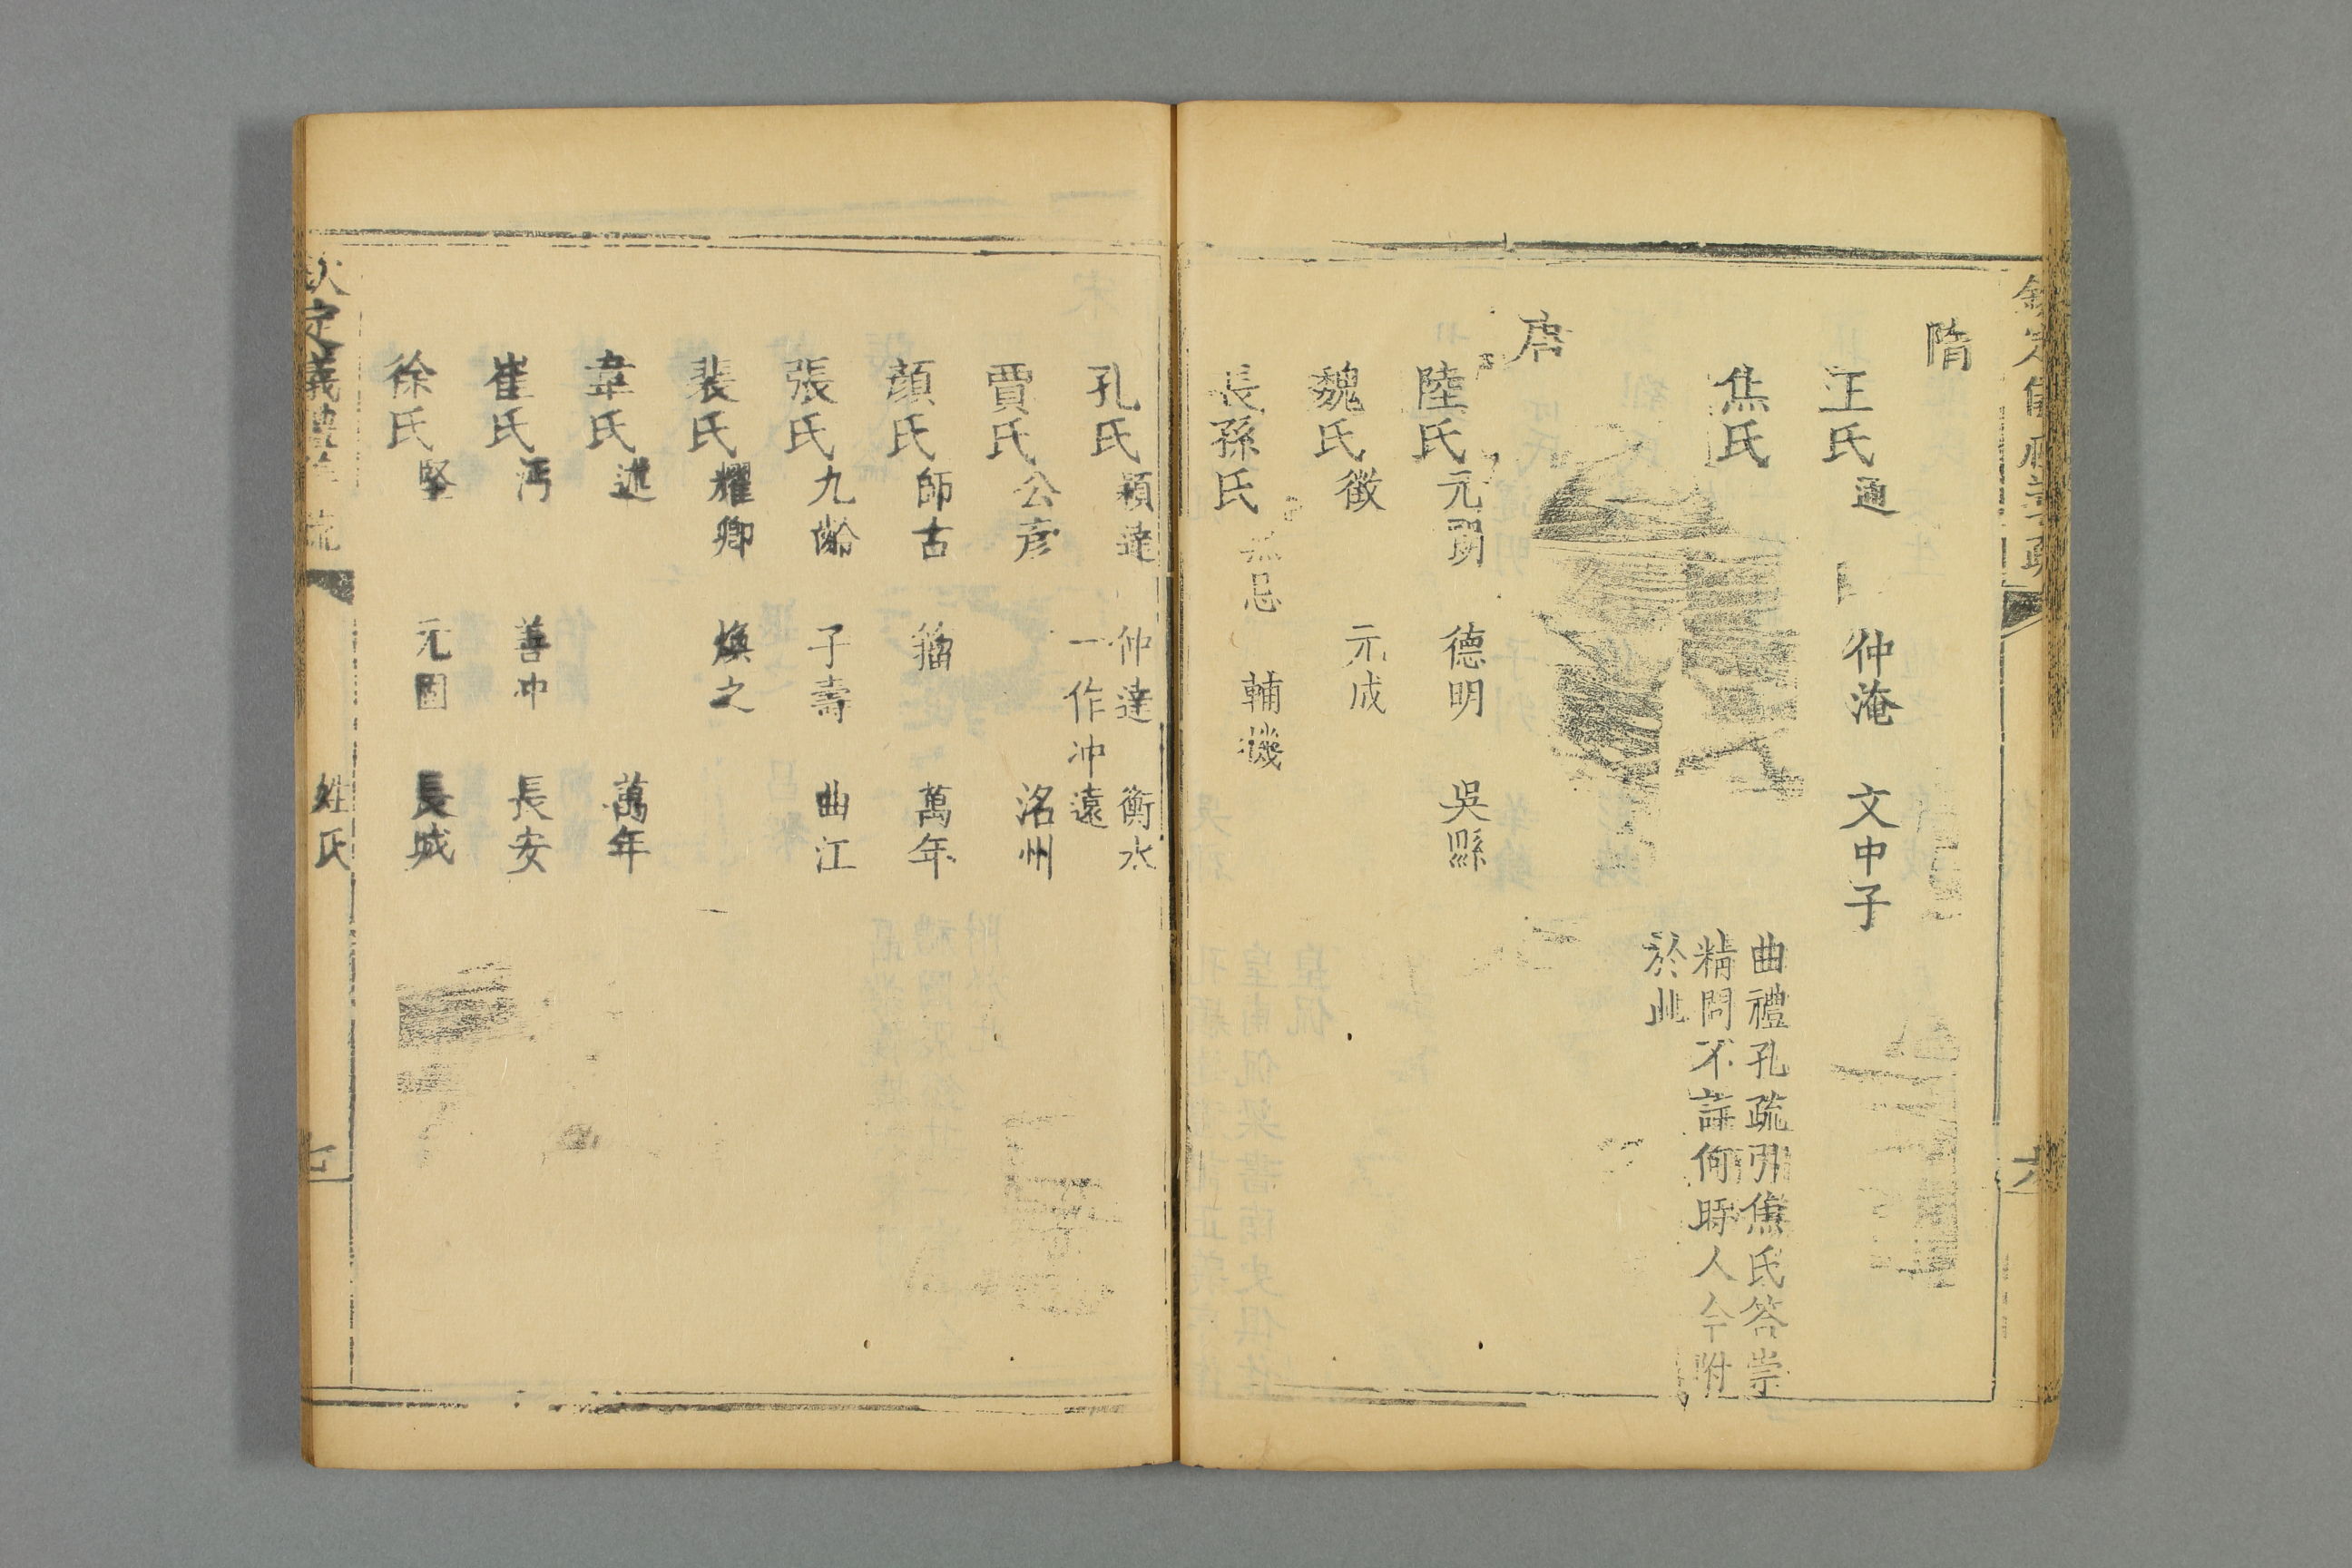 隋
王氏通 仲淹 文中子
焦氏 曲禮孔疏引焦氏答崇
精問不詳何時人今附
於此
唐
陸氏元朗 德明 吳縣
魏氏徵 元成
長孫氏無忌 輔機
孔氏穎達 仲達 衡水
一作冲遠
賈氏公彥 洺州
顏氏師古 籀 萬年
張氏九齡 子壽 曲江
裴氏耀卿 煥之
韋氏述 萬年
崔氏沔 善冲 長安
徐氏堅 元固 長城
欽定義禮義疏 姓氏 七